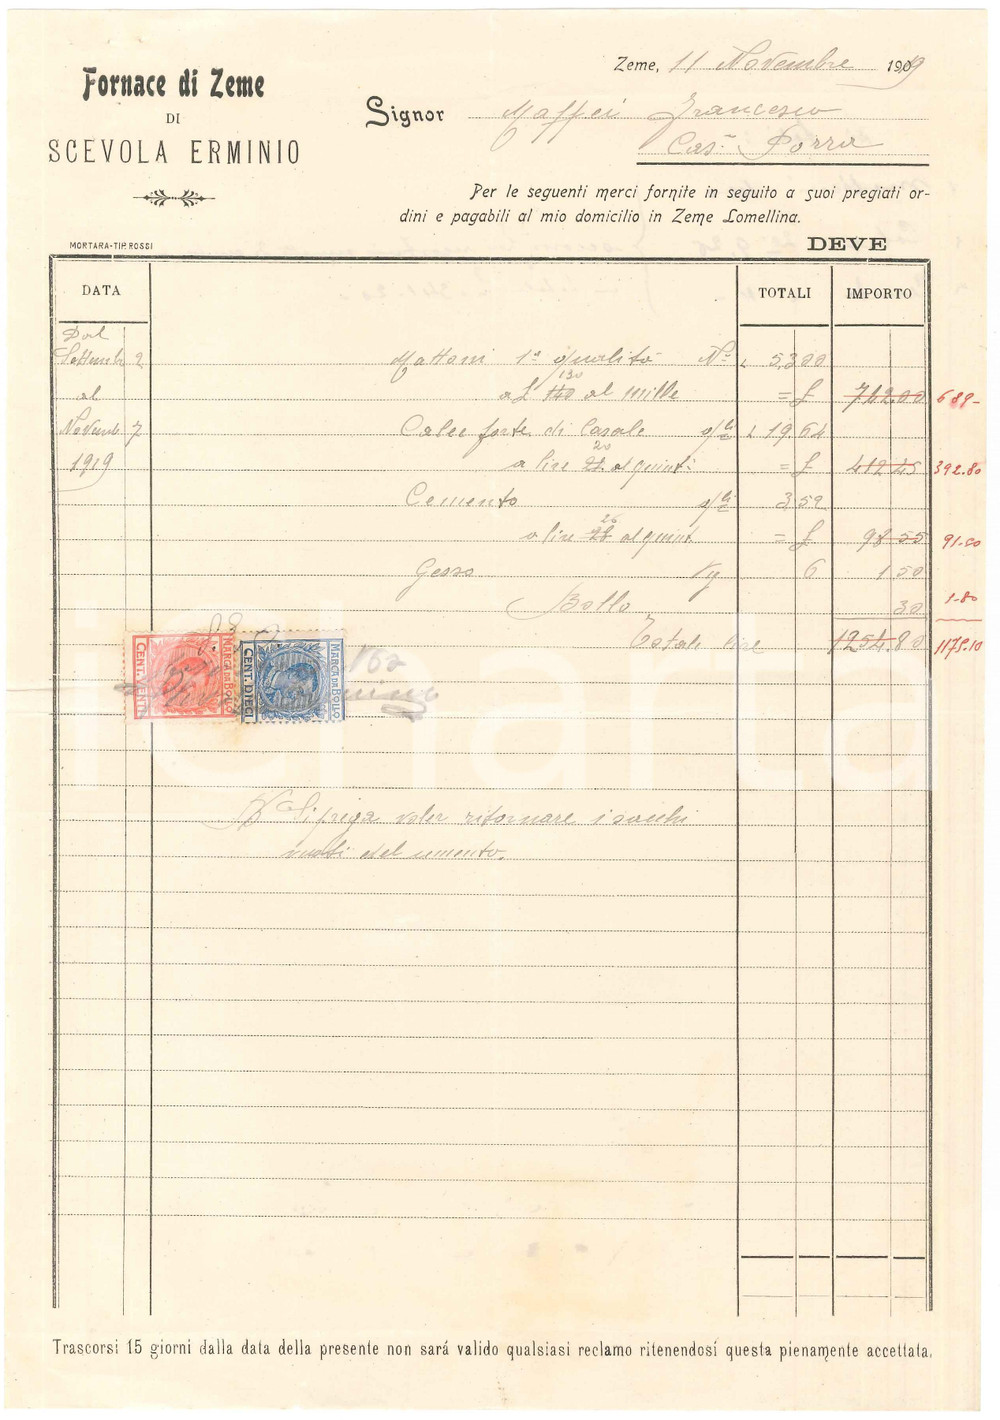 Zeme, 11 Novembre 1909
Fornace di Zeme
DI
SCEVOLA ERMINIO
Signor Maffei Francesco
Casª Porra
Per le seguenti merci fornite in seguito a suoi pregiati or-
dini e pagabili al mio domicilio in Zeme Lomellina.
MORTARA-TIP. ROSSI
DEVE
DATA TOTALI IMPORTO
Dal
Settemb 2 Mattoni 1ª qualità Nº 5,300
130
al a £ 140 al mille = £ 742.00 689-
Novemb 7 Calce forte di Casale q/li 19 64
20
1919 a lire 21 al quint. = £ 412 45 392.80
Cemento q/li 3 52
26
a lire 28 al quint. = £ 98 55 91.50
Gesso Kg 6 1 50
Bollo 30 1.80
Totali lire 1254.80 1175.10
MARCA DA BOLLO
CENT. VENTI
MARCA DA BOLLO
CENT. DIECI
Si prega voler ritornare i sacchi
vuoti del cemento.
icharta
Trascorsi 15 giorni dalla data della presente non sará valido qualsiasi reclamo ritenendosi questa pienamente accettata.